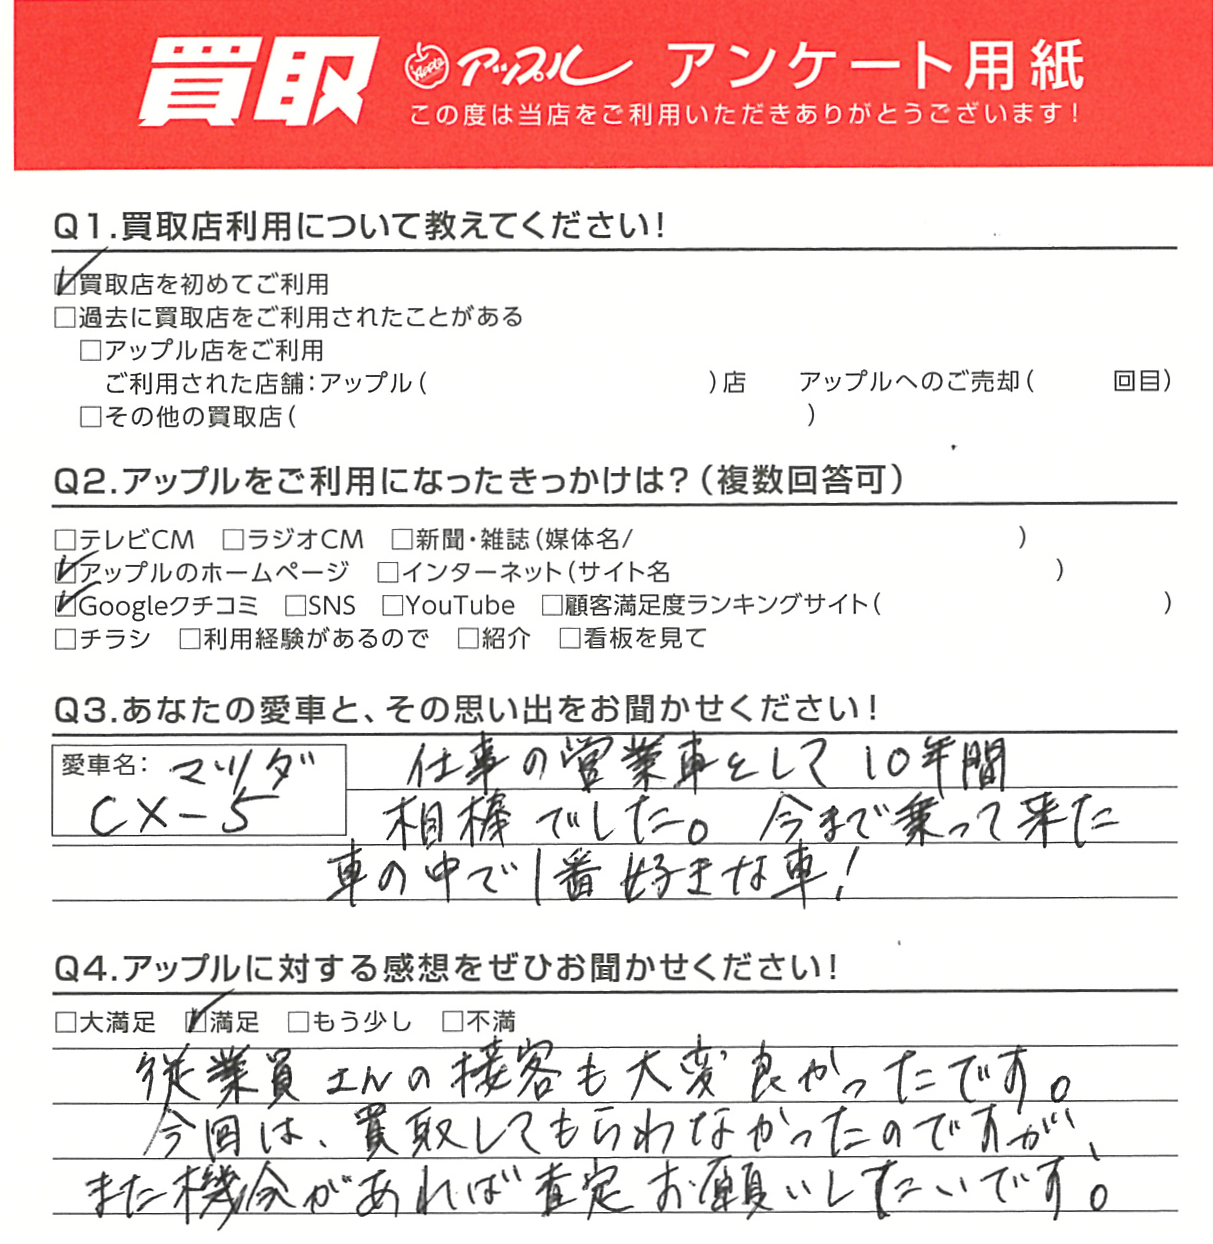 買取 Apple アップル アンケート用紙
この度は当店をご利用いただきありがとうございます!
Q1.買取店利用について教えてください!
☑買取店を初めてご利用
□過去に買取店をご利用されたことがある
□アップル店をご利用
ご利用された店舗:アップル( )店 アップルへのご売却( 回目)
□その他の買取店( )
Q2.アップルをご利用になったきっかけは?(複数回答可)
□テレビCM □ラジオCM □新聞・雑誌(媒体名/ )
☑アップルのホームページ □インターネット(サイト名 )
☑Googleクチコミ □SNS □YouTube □顧客満足度ランキングサイト( )
□チラシ □利用経験があるので □紹介 □看板を見て
Q3.あなたの愛車と、その思い出をお聞かせください!
愛車名: マツダ 仕事の営業車として10年間
CX-5 相棒でした。今まで乗って来た
車の中で1番好きな車!
Q4.アップルに対する感想をぜひお聞かせください!
□大満足 ☑満足 □もう少し □不満
従業員さんの接客も大変良かったです。
今回は、買取してもらわなかったのですが、
また機会があれば査定お願いしたいです。